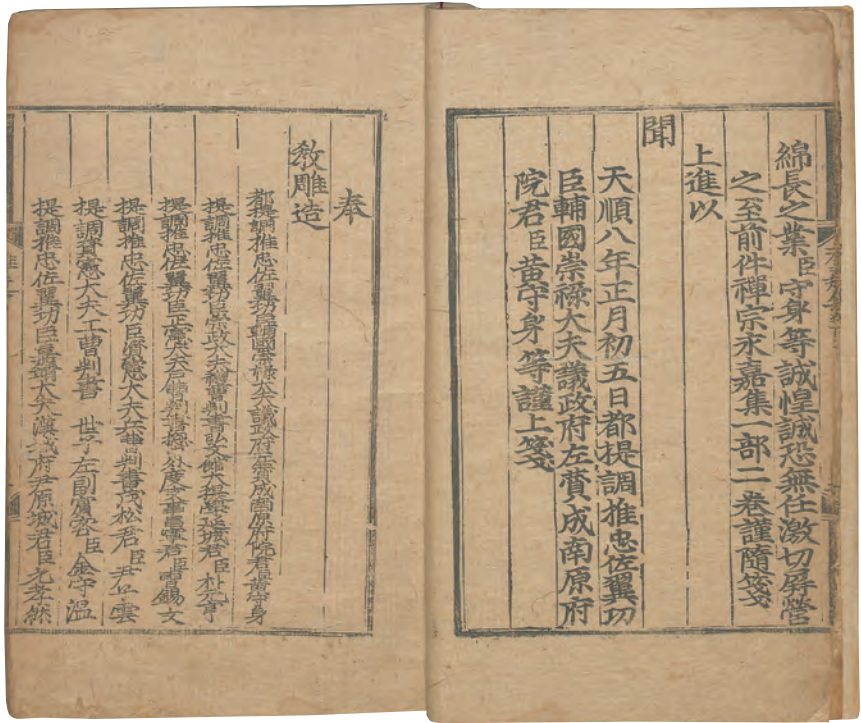 綿長之業臣守身等誠惶誠恐無任激切屏營
之至前件禪宗永嘉集一部二卷謹隨箋
上進以
聞
天順八年正月初五日都提調推忠佐翼功
臣輔國崇祿大夫議政府左贊成南原府
院君臣黃守身等謹上箋
奉
教雕造
都提調推忠佐翼功臣輔國崇祿大夫議政府左贊成南原府院君臣黃守身
提調推忠佐翼功臣崇政大夫禮曹判書弘文館大提學延城君臣朴元亨
提調推忠佐翼功臣正憲大夫戶曹判書 昌寧君臣曹錫文
提調推忠佐翼功臣資憲大夫兵曹判書茂松君臣尹子雲
提調資憲大夫工曹判書 世子左副賓客臣金守溫
提調推忠佐翼功臣嘉靖大夫漢城府尹原城君臣元孝然